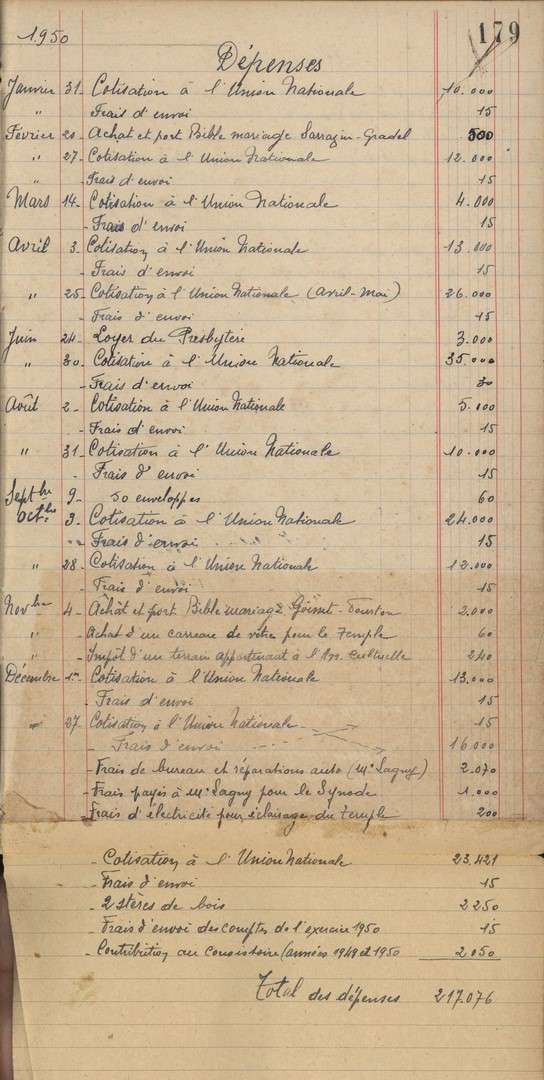 1950
179
Dépenses
Janvier 31 - Cotisation à l'Union Nationale 10.000
" Frais d'envoi 15
Février 20 - Achat et port Bible mariage Sarrazin-Gradel 500
" 27 - Cotisation à l'Union Nationale 12.000
" Frais d'envoi 15
Mars 14 - Cotisation à l'Union Nationale 4.000
- Frais d'envoi 15
Avril 3 - Cotisation à l'Union Nationale 13.000
- Frais d'envoi 15
" 25 - Cotisation à l'Union Nationale (Avril-Mai) 26.000
- Frais d'envoi 15
Juin 24 - Loyer du Presbytère 3.000
" 30 - Cotisation à l'Union Nationale 35.000
- Frais d'envoi 30
Août 2 - Cotisation à l'Union Nationale 5.000
- Frais d'envoi 15
" 31 - Cotisation à l'Union Nationale 10.000
- Frais d'envoi 15
Septbre 9 - 50 enveloppes 60
Octbre 3 - Cotisation à l'Union Nationale 24.000
" Frais d'envoi 15
" 28 - Cotisation à l'Union Nationale 12.000
- Frais d'envoi 15
Novbre 4 - Achat et port Bible mariage 2.000
" - Achat d'un carreau de vitre pour le Temple 60
" - Impôt d'un terrain appartenant à l'Ass. Cultuelle 240
Décembre 1er - Cotisation à l'Union Nationale 13.000
- Frais d'envoi 15
" 27 - Cotisation à l'Union Nationale 15
- Frais d'envoi 16.000
- Frais de bureau et réparations auto (Mr Lagny) 2.070
- Frais payés à Mr Lagny pour le Synode 1.000
- Frais d'électricité pour éclairage du Temple 200
- Cotisation à l'Union Nationale 23.421
- Frais d'envoi 15
- 2 stères de bois 2250
- Frais d'envoi des comptes de l'exercice 1950 15
- Contribution au consistoire (années 1949 et 1950 2050
Total des dépenses 217.076